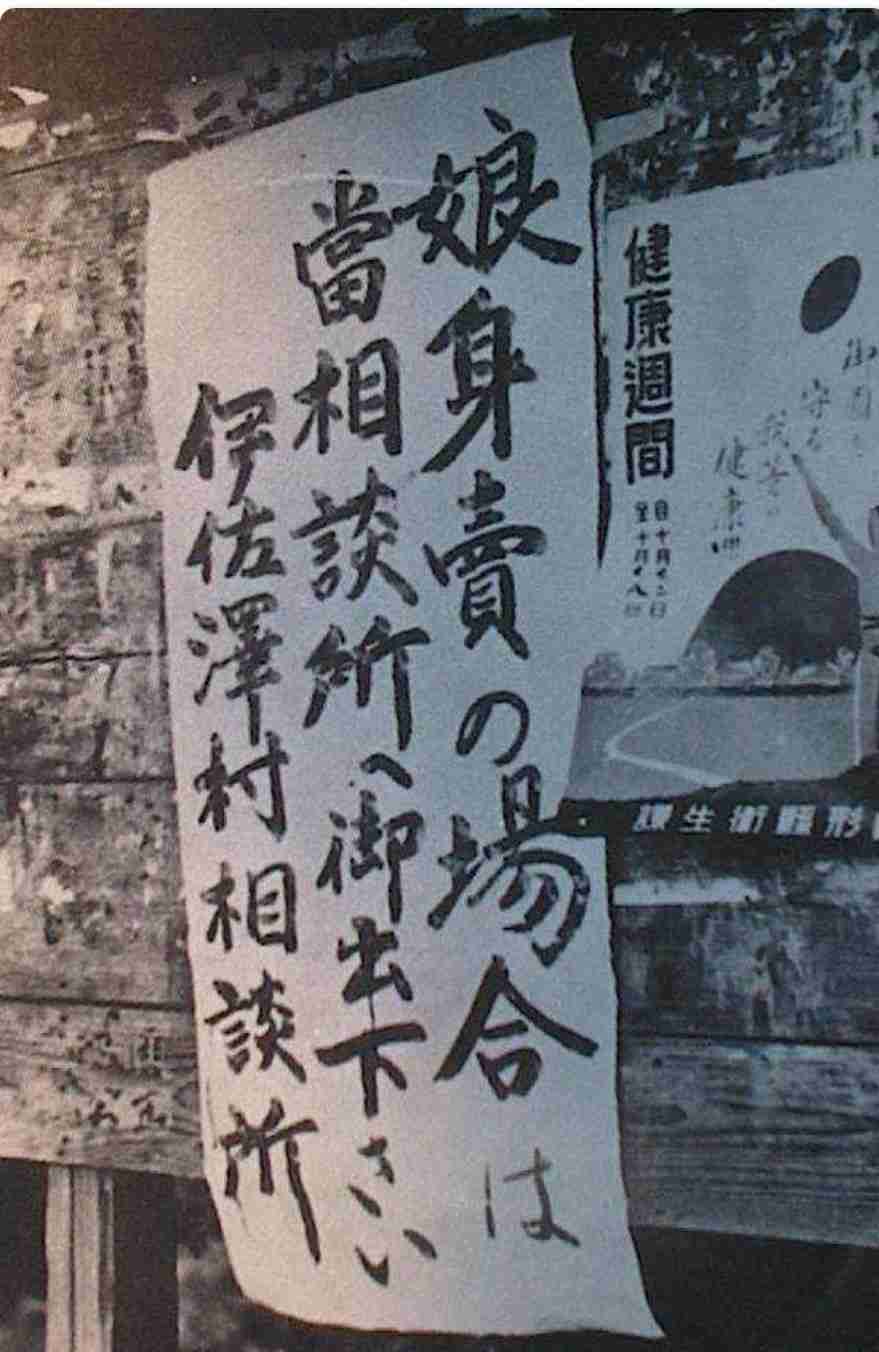 娘身賣の場合は
當相談所へ御出下さい
伊佐澤村相談所
健康週間
自十月十二日
至十月十八日
守る
我等の
健康
課生衛縣形